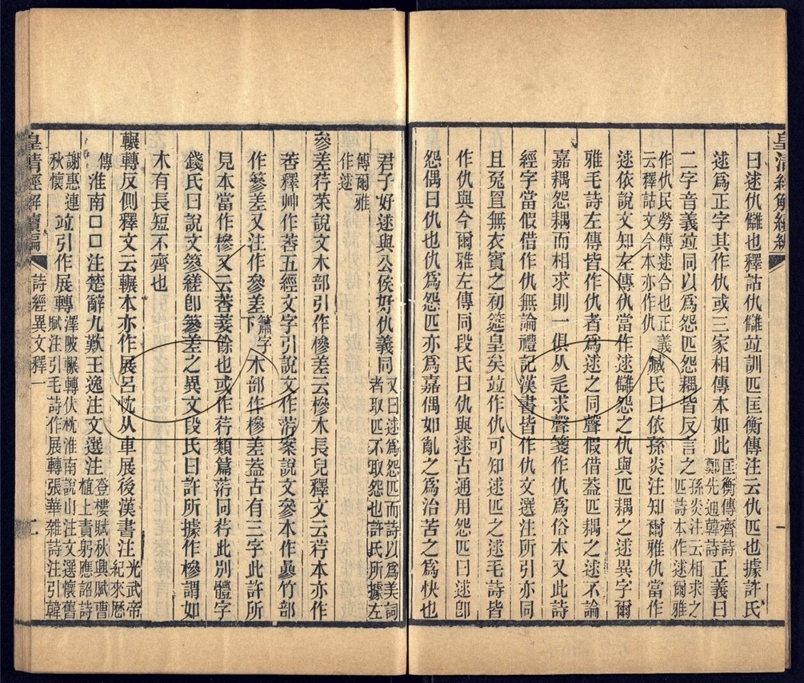 皇清經解續編
曰逑仇讎也釋詁仇讎竝訓匹匡衡傳注云仇匹也據許氏
逑為正字其作仇或三家相傳本如此匡衡傳齊詩鄭先通韓詩正義曰
二字音義竝同以為怨匹怨耦皆反言之孫炎注云相求之匹詩本作逑爾雅
作仇民勞傳逑合也正義云釋詁文今本亦作仇臧氏曰依孫炎注知爾雅仇當作
逑依說文知左傳仇當作逑讎怨之仇與匹耦之逑異字爾
雅毛詩左傳皆作仇者為逑之同聲假借葢匹耦之逑不論
嘉耦怨耦而相求則一俱从辵求聲箋作仇為俗本又此詩
經字當假借作仇無論禮記漢書皆作仇文選注所引亦同
且兔罝無衣賓之初筵皇矣竝作仇可知逑匹之逑毛詩皆
作仇與今爾雅左傳同段氏曰仇與逑古通用怨匹曰逑卽
怨偶曰仇也仇為怨匹亦為嘉偶如亂之為治苦之為快也
君子好逑與公侯好仇義同又曰逑為怨匹而詩以為美詞者取匹不取怨也許氏所據左
傅爾雅作逑
參差荇菜說文木部引作槮差云槮木長皃釋文云荇本亦作
莕釋艸作莕五經文字引說文作𦵷案說文參木作槮竹部
作篸差又注作參差下簫字木部作槮差葢古有三字此許所
見本當作槮又云莕萎餘也或作荇類篇𦵷同荇此別體字
錢氏曰說文篸縒卽參差之異文段氏曰許所據作槮謂如
木有長短不齊也
輾轉反側釋文云輾本亦作展呂忱从車展後漢書注光武帝紀來歷
傳淮南口口注楚辭九歎王逸注文選注登樓賦秋興賦曹植上責躬應詔詩
謝惠連秋懷竝引作展轉澤陂輾轉伏枕淮南說山注文選懷舊賦注引毛詩作展轉張華雜詩注引韓
皇清經解續編
詩經異文釋一
二